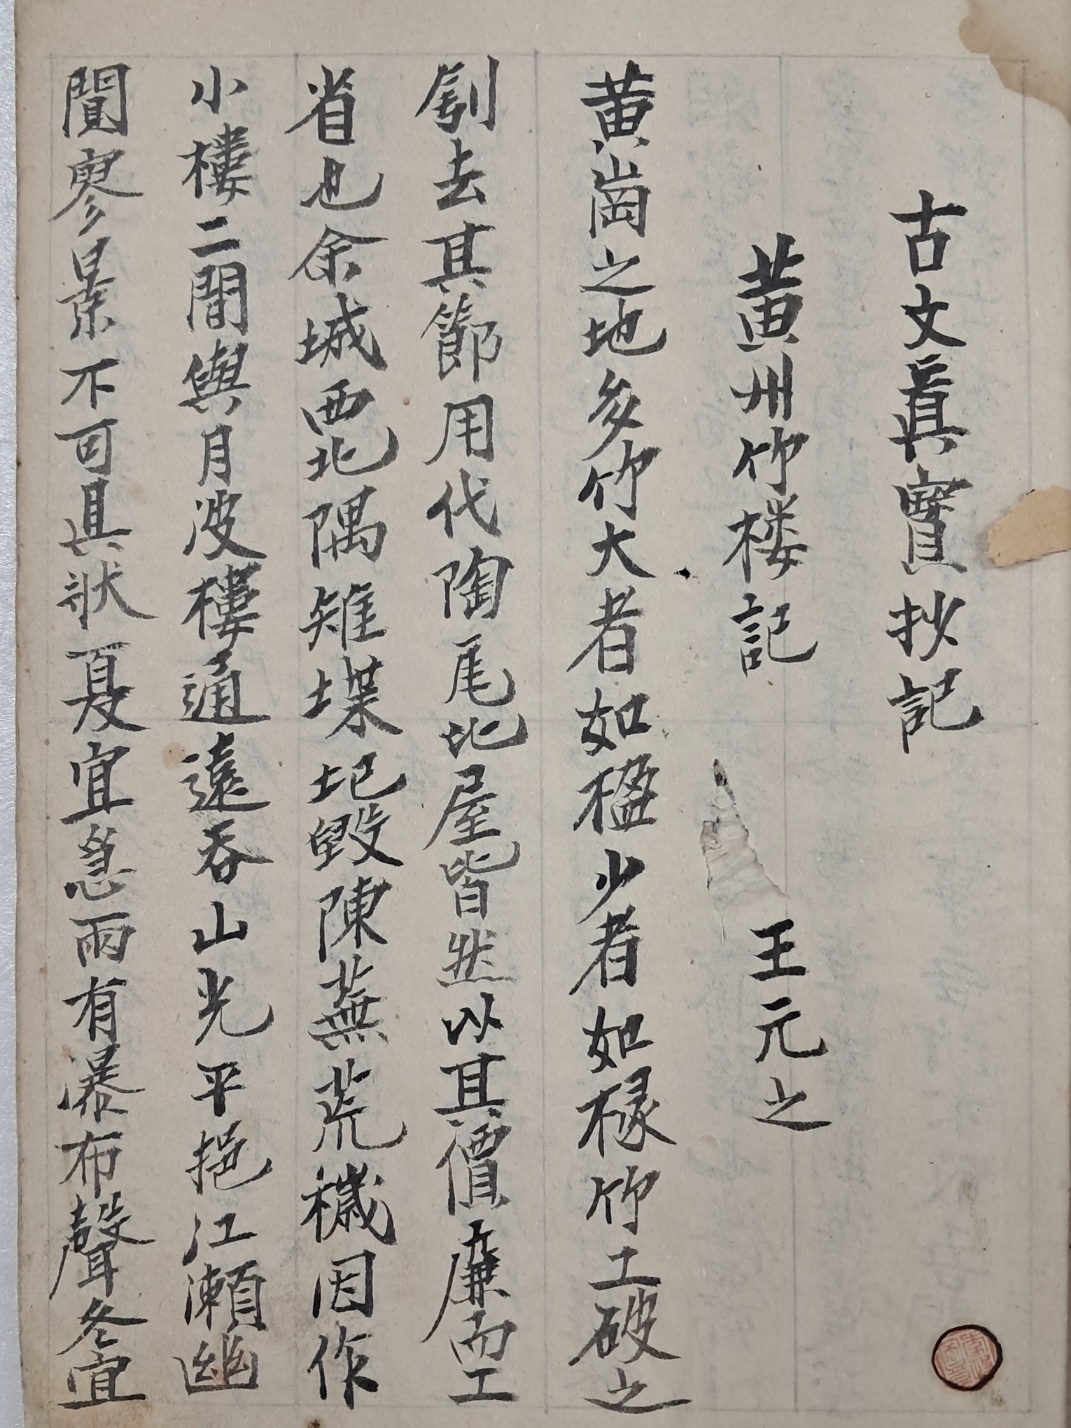 古文真寶抄記
黄州竹楼記 王元之
黄崗之地多竹大者如楹少者如椽竹工破之
刳去其節用代陶尾比屋皆然以其價廉而工
省也余城西北隅雉堞圮毀陳蕪荒穢因作
小樓二間與月波樓通遠吞山光平挹江瀬幽
闃寥景不可具狀夏宜急雨有瀑布聲冬宜